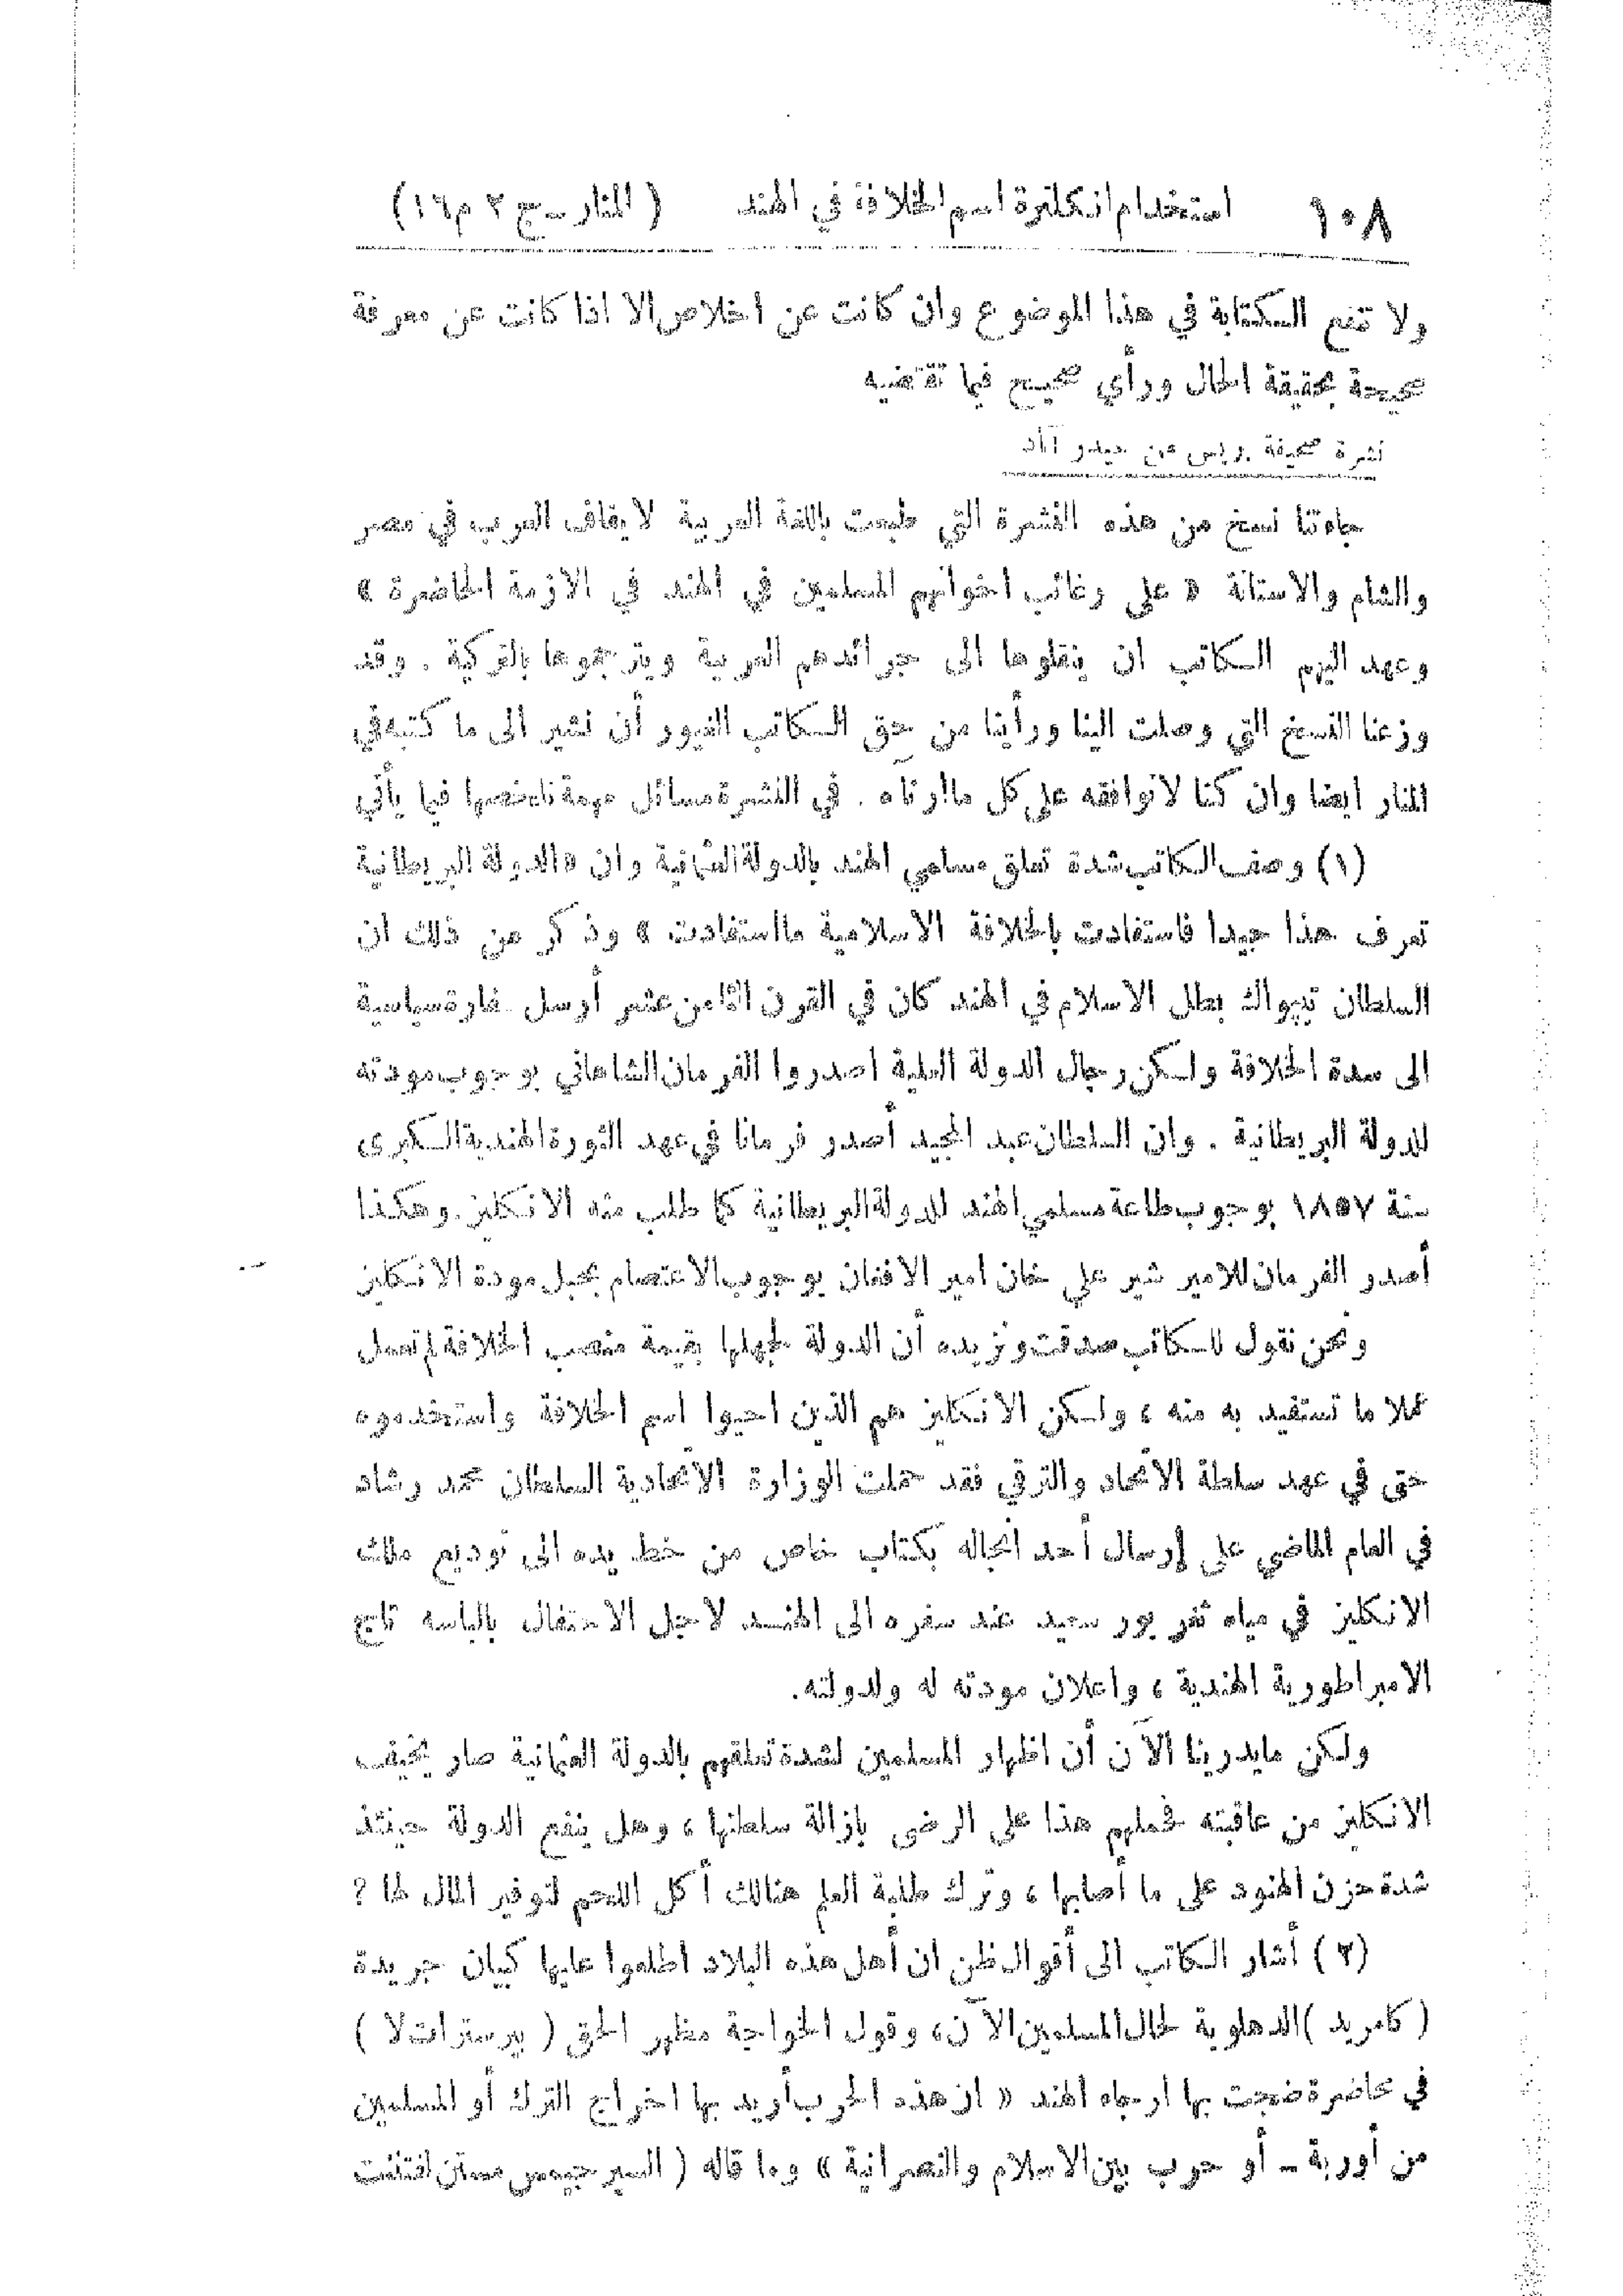 ١٠٨ استخدام انكلترة اسم الخلافة في الهند ( المنار ـ ج ٢ م ١٦ )
ولا تنفع الكتابة في هذا الموضوع وان كانت عن اخلاص الا اذا كانت عن معرفة
صحيحة بحقيقة الحال ورأي صحيح فيما تقتضيه
نشرة صحيفة بريس من حيدر آباد
جاءتنا نسخ من هذه النشرة التي طبعت باللغة العربية لايقاف العرب في مصر
والشام والاستانة « على رغائب اخوانهم المسلمين في الهند في الازمة الحاضرة »
وعهد اليهم الكاتب ان ينقلوها الى جرائدهم العربية ويترجموها بالتركية . وقد
وزعنا النسخ التي وصلت الينا ورأينا من حق الكاتب الغيور أن نشير الى ما كتبه في
المنار ايضا وان كنا لا نوافقه على كل ما ارتآه . في النشرة مسائل مهمة نلخصها فيما يأتي
(١) وصف الكاتب شدة تعلق مسلمي الهند بالدولة العثمانية وان «الدولة البريطانية
تعرف هذا جيدا فاستفادت بالخلافة الاسلامية ما استفادت » وذكر من ذلك ان
السلطان تيبواك بطل الاسلام في الهند كان في القرن الثامن عشر أرسل سفارة سياسية
الى سدة الخلافة ولكن رجال الدولة العلية اصدروا الفرمان الشاهاني بوجوب مودته
للدولة البريطانية . وان السلطان عبد المجيد أصدر فرمانا في عهد الثورة الهندية الكبرى
سنة ١٨٥٧ بوجوب طاعة مسلمي الهند للدولة البريطانية كما طلب منه الانكليز . وهكذا
أصدر الفرمان للامير شير علي خان امير الافغان بوجوب الاعتصام بحبل مودة الانكليز
ونحن نقول للكاتب صدقت ونزيده أن الدولة لجهلها بقيمة منصب الخلافة لم تعمل
عملا ما تستفيد به منه ، ولكن الانكليز هم الذين احيوا اسم الخلافة واستخدموه
حتى في عهد سلطة الاتحاد والترقي فقد حملت الوزارة الاتحادية السلطان محمد رشاد
في العام الماضي على إرسال أحد انجاله بكتاب خاص من خط يده الى توديع ملك
الانكليز في مياه ثغر بور سعيد عند سفره الى الهند لاجل الاحتفال بالباسه تاج
الامبراطورية الهندية ، واعلان مودته له ولدولته.
ولكن مايدرينا الآن أن اظهار المسلمين لشدة تعلقهم بالدولة العثمانية صار يخيف
الانكليز من عاقبته فحملهم هذا على الرضى بازالة سلطتها ، وهل ينفع الدولة حينئذ
شدة حزن الهنود على ما أصابها ، وترك طلبة العلم هنالك أكل اللحم لتوفير المال لها ؟
(٢) أشار الكاتب الى أقوال ظن ان أهل هذه البلاد اطلعوا عليها كبيان جريدة
( كامريد ) الدهلوية لحال المسلمين الآن ، وقول الخواجة مظهر الحق ( بيرسترات لا )
في محاضرة ضجت بها ارجاء الهند « ان هذه الحرب أريد بها اخراج الترك أو المسلمين
من أوربة ـ أو حرب بين الاسلام والنصرانية » وما قاله ( السير جيمس